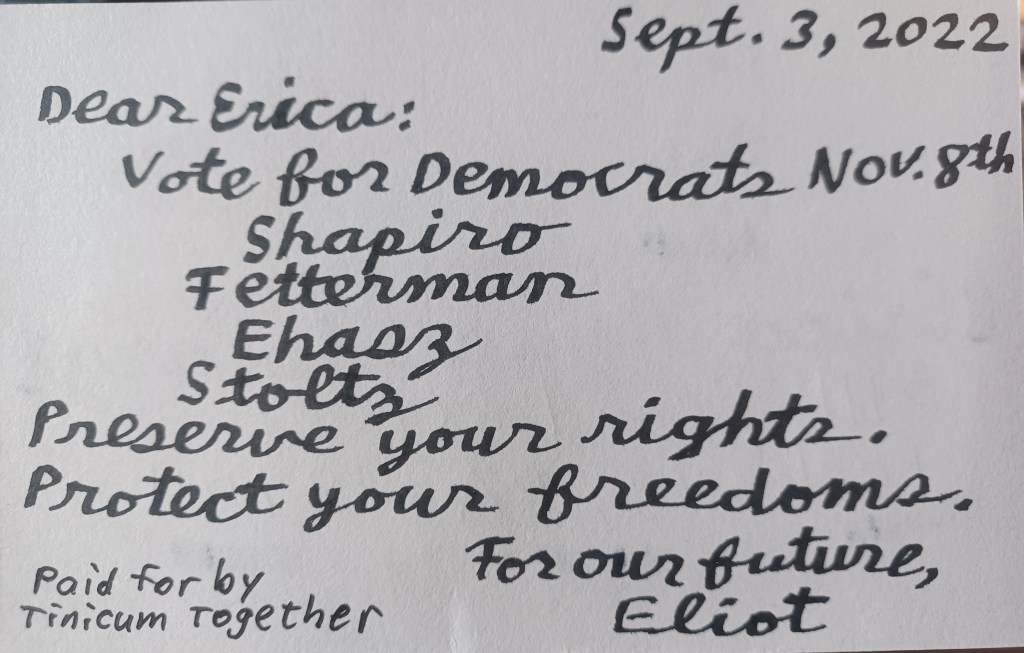 Sept. 3, 2022
Dear Erica:
Vote for Democrats Nov. 8th
Shapiro
Fetterman
Ehasz
Stoltz
Preserve your rights.
Protect your freedoms.
For our future,
Eliot
Paid for by
Tinicum Together